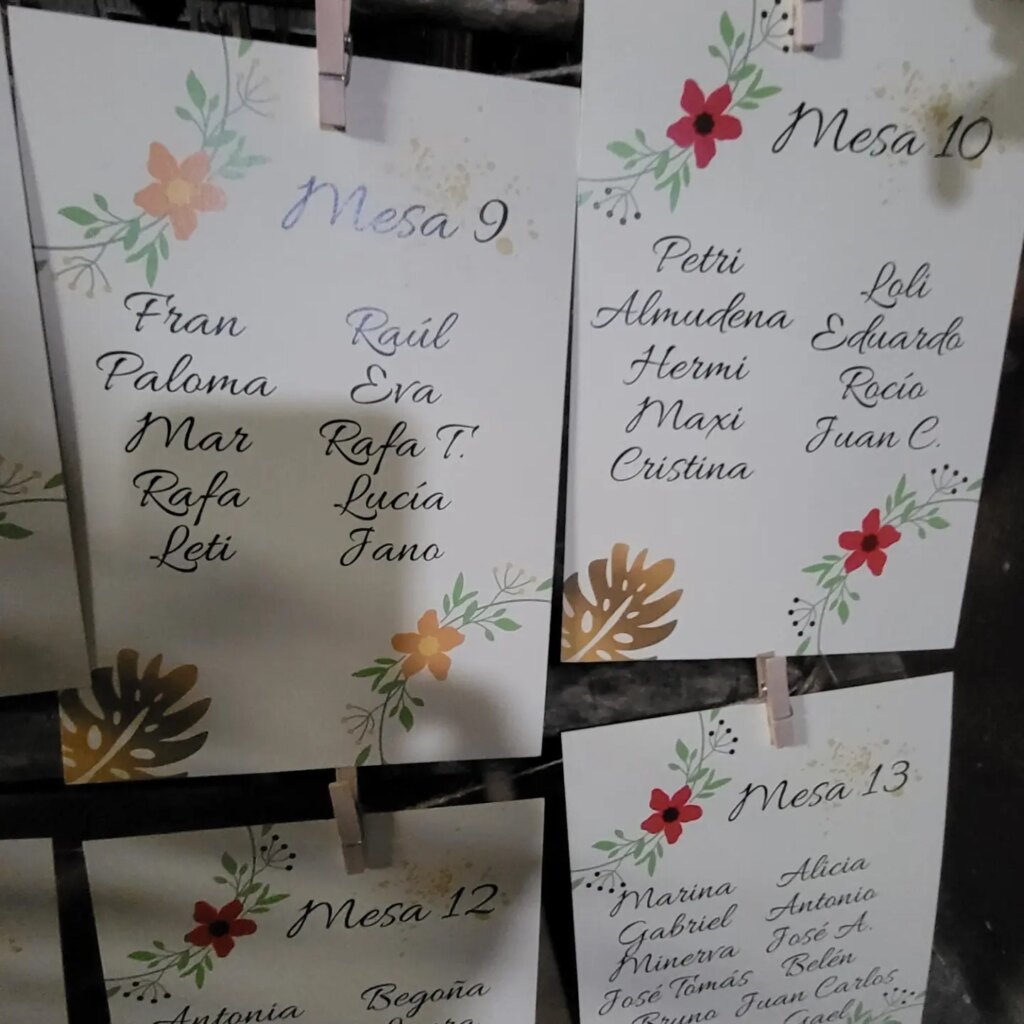 Mesa 9
Fran
Paloma
Mar
Rafa
Leti
Raúl
Eva
Rafa T.
Lucía
Jano
Mesa 10
Petri
Almudena
Hermi
Maxi
Cristina
Loli
Eduardo
Rocío
Juan C.
Mesa 12
Antonia
Begoña
Mesa 13
Marina
Gabriel
Minerva
José Tomás
Bruno
Alicia
Antonio
José A.
Belén
Juan Carlos
Gael